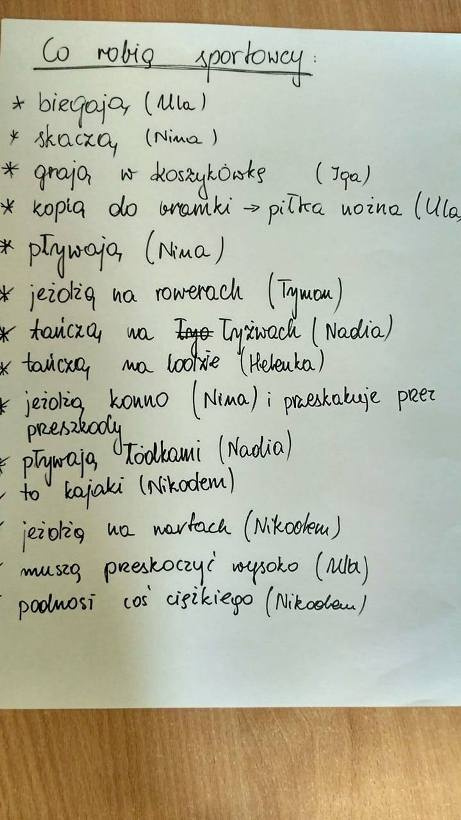 Co robią sportowcy:
* biegają (Ula)
* skaczą (Nina)
* grają w koszykówkę (Iga)
* kopią do bramki → piłka nożna (Ula)
* pływają (Nina)
* jeżdżą na rowerach (Tymon)
* tańczą na łyżwach (Nadia)
* tańczą na lodzie (Helenka)
* jeżdżą konno (Nina) i przeskakuje przez
przeszkody
* pływają łódkami (Nadia)
to kajaki (Nikodem)
jeżdżą na nartach (Nikodem)
muszą przeskoczyć wysoko (Ula)
podnosi coś ciężkiego (Nikodem)